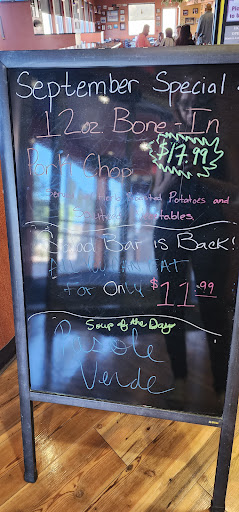 September Special
12oz Bone-In
$17.99
Pork Chop
Potatoes and
Vegetables
Salad Bar is Back!
All U Can EAT
for Only $11.99
Soup of the Day
Posole
Verde